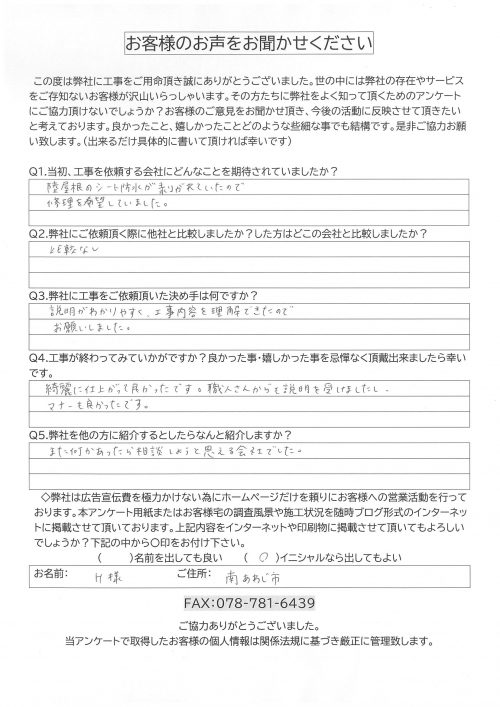 お客様のお声をお聞かせください
この度は弊社に工事をご用命頂き誠にありがとうございました。世の中には弊社の存在やサービス
をご存知ないお客様が沢山いらっしゃいます。その方たちに弊社をよく知って頂くためのアンケート
にご協力頂けないでしょうか？お客様のご意見をお聞かせ頂き、今後の活動に反映させて頂きたい
と考えております。良かったこと、嬉しかったことどのような些細な事でも結構です。是非ご協力お願
い致します。（出来るだけ具体的に書いて頂ければ幸いです）
Q1.当初、工事を依頼する会社にどんなことを期待されていましたか？
陸屋根のシート防水が剥がれていたので
修理を希望していました。
Q2.弊社にご依頼頂く際に他社と比較しましたか？した方はどこの会社と比較しましたか？
比較なし
Q3.弊社に工事をご依頼頂いた決め手は何ですか？
説明がわかりやすく、工事内容を理解できたので
お願いしました。
Q4.工事が終わってみていかがですか？良かった事・嬉しかった事を忌憚なく頂戴出来ましたら幸い
です。
綺麗に仕上がって良かったです。職人さんからも説明を受けましたし、
マナーも良かったです。
Q5.弊社を他の方に紹介するとしたらなんと紹介しますか？
また何かあったら相談しようと思える会社でした。
◇弊社は広告宣伝費を極力かけない為にホームページだけを頼りにお客様への営業活動を行って
おります。本アンケート用紙またはお客様宅の調査風景や施工状況を随時ブログ形式のインターネッ
トに掲載させて頂いております。上記内容をインターネットや印刷物に掲載させて頂いてもよろしい
でしょうか？下記の中から〇印をお付け下さい。
（　　）名前を出しても良い　（ 〇 ）イニシャルなら出してもよい
お名前：　H 様　ご住所：　南あわじ市
FAX：078-781-6439
ご協力ありがとうございました。
当アンケートで取得したお客様の個人情報は関係法規に基づき厳正に管理致します。